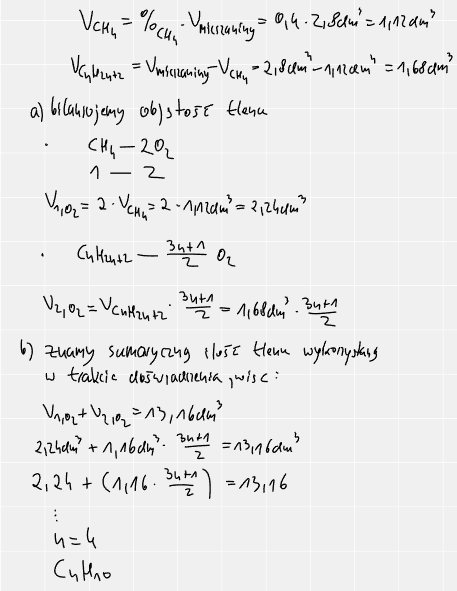 V_CH₄ = %_CH₄ · V_mieszaniny = 0,4 · 2,8dm³ = 1,12dm³
V_CnH2n+2 = V_mieszaniny - V_CH₄ = 2,8dm³ - 1,12dm³ = 1,68dm³
a) bilansujemy objętość tlenu
· CH₄ — 2O₂
1 — 2
V_1,O₂ = 2 · V_CH₄ = 2 · 1,12dm³ = 2,24dm³
· CnH2n+2 — (3n+1)/2 O₂
V_2,O₂ = V_CnH2n+2 · (3n+1)/2 = 1,68dm³ · (3n+1)/2
b) znamy sumaryczną ilość tlenu wykorzystaną
w trakcie doświadczenia, więc:
V_1,O₂ + V_2,O₂ = 13,16dm³
2,24dm³ + 1,16dm³ · (3n+1)/2 = 13,16dm³
2,24 + (1,16 · (3n+1)/2) = 13,16
⋮
n = 4
C₄H₁₀